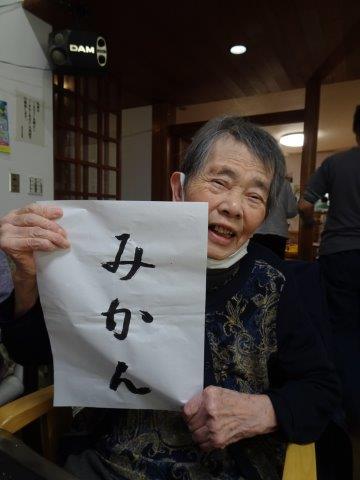 DAM
みかん